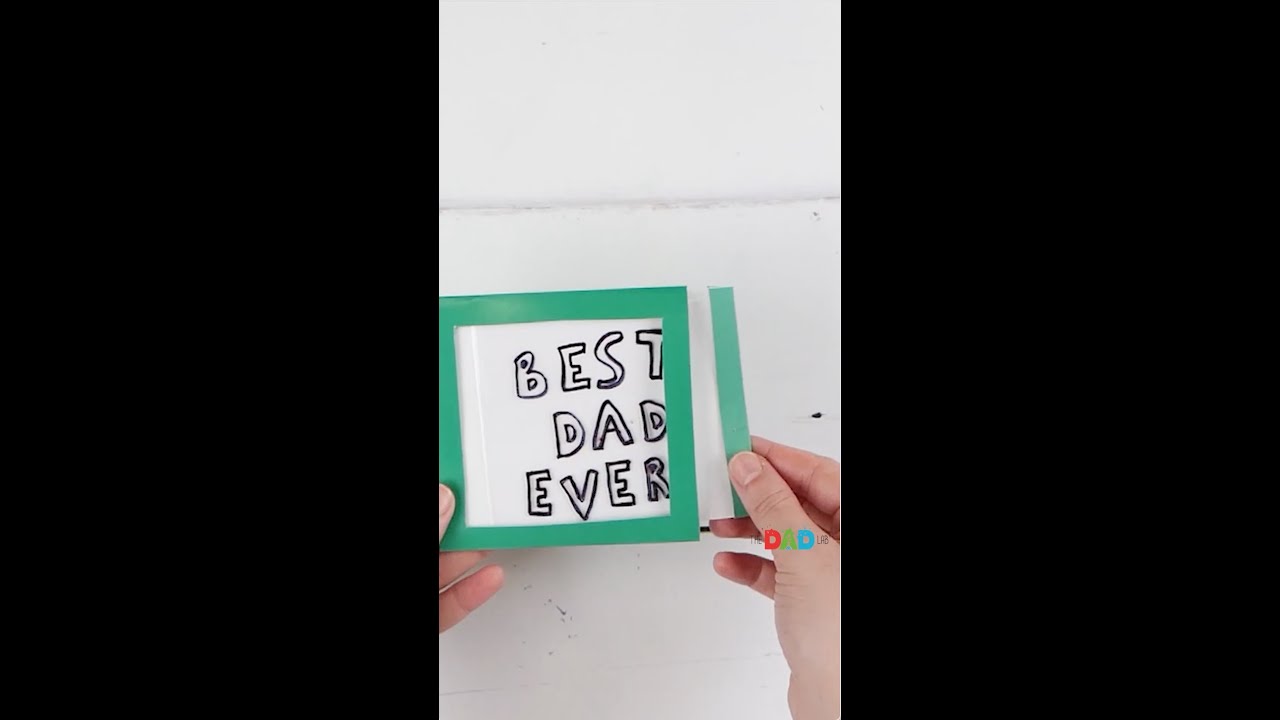 BEST
DAD
EVER
THE DAD LAB